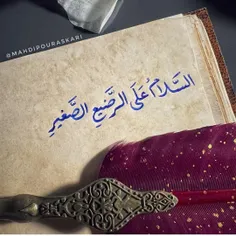 @MAHDIPOURASKARI
السَّلامُ عَلَى الرَّضيعِ الصَّغيرِ